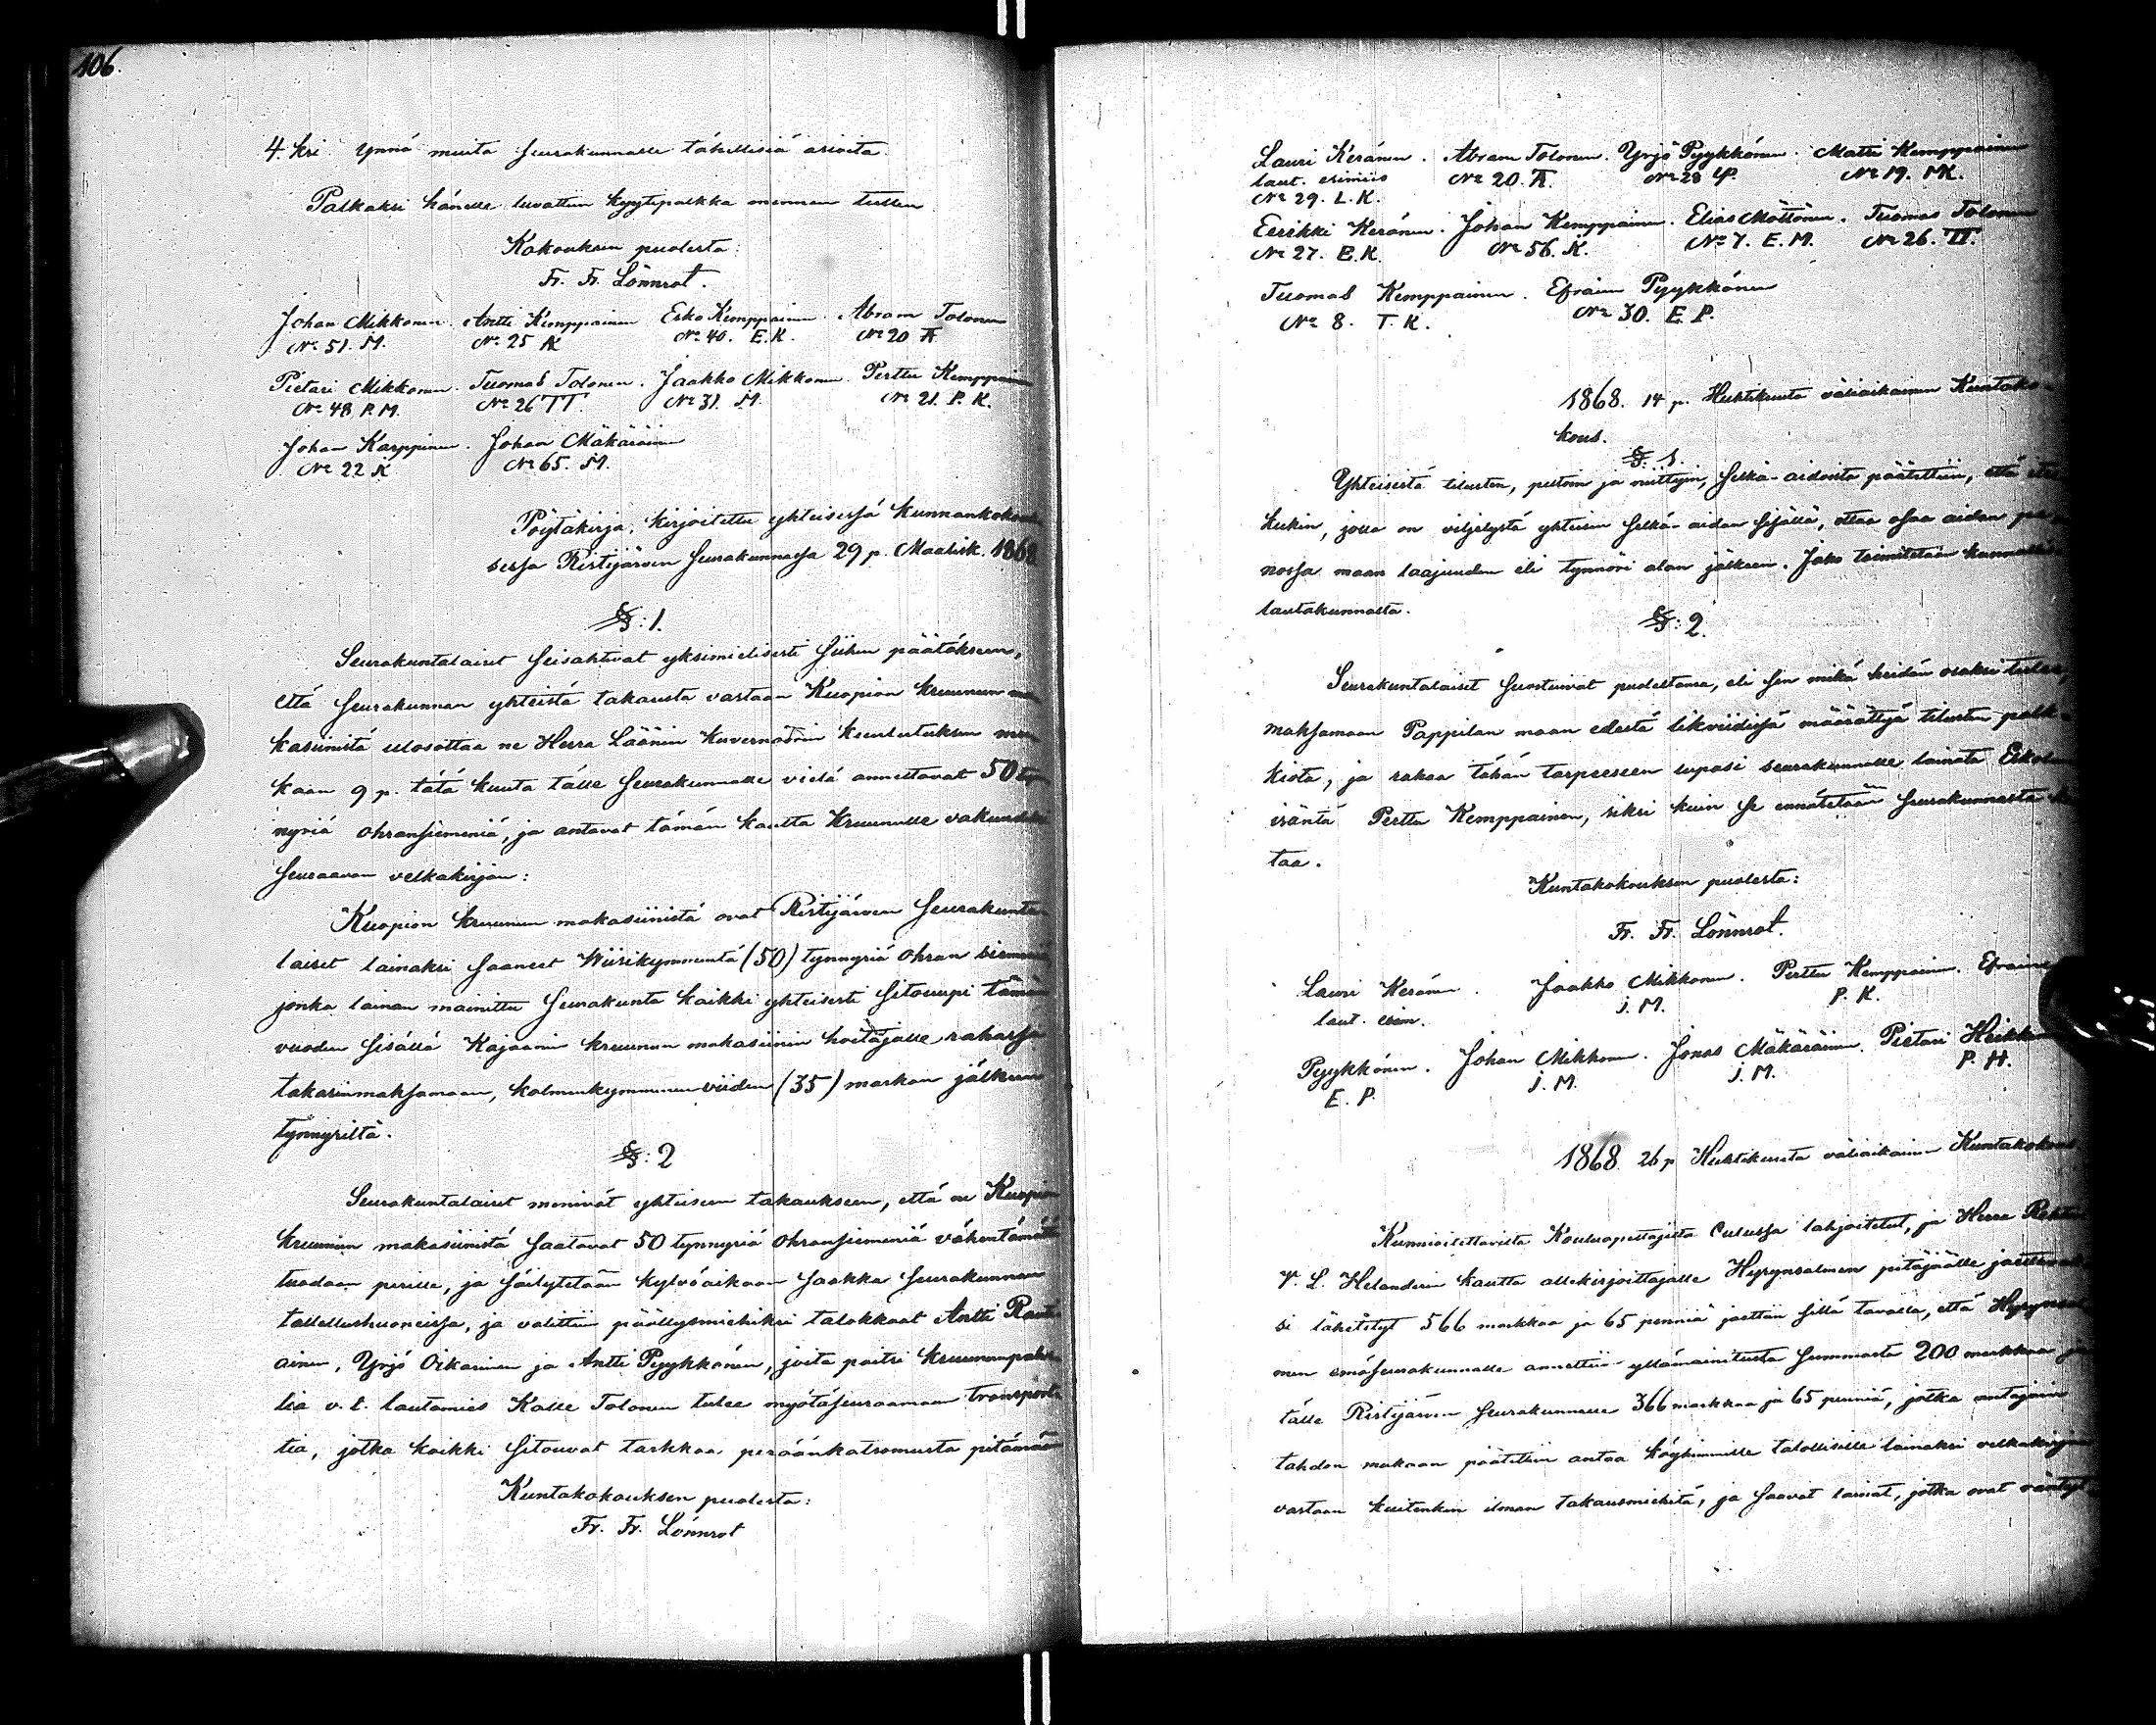 106.
4. ksi ynnä muita seurakunnalle tähellisiä asioita
Palkaksi hänelle luvattiin kyytipalkka mennen tullen
Kokouksen puolesta:
Fr. Fr. Lönnrot.
Johan Mikkonen. Antti Kemppainen Esko Kemppainen. Abram Tolonen
No 51. M. No 25 AK No 40. E.K. No 20
Pietari Mikkonen. Tuomas Tolonen. Jaakko Mikkonen. Perttu Kemppainen
No 48 P.M. No 26 TT. No 31. M. No 21. P. K.
Johan Karppinen. Johan Mäkäräinen
No 22 K No 65. M.
Pöytäkirja, kirjoitettu yhteisessä kunnankokouk-
sessa Ristijärven seurakunnassa 29 p. Maalisk. 1868.
§: 1.
Seurakuntalaiset seisahtivat yksimielisesti siihen päätökseen,
että seurakunnan yhteistä takausta vastaan Kuopion kruunun ma-
kasiinistä ulosottaa ne Herra Läänin Kuvernöörin kuulutuksen mu-
kaan 9 p. tätä kuuta tälle seurakunnalle vielä annettavat 50 tyn-
nyriä ohransiemeniä, ja antavat tämän kautta Kruunulle vakuudeksi
seuraavan velkakirjan:
Kuopion kruunun makasiinistä ovat Ristijärven seurakunta-
laiset lainaksi saaneet Wiisikymmentä (50) tynnyriä ohran siemeniä
jonka lainan mainittu seurakunta kaikki yhteisesti sitoupi tämän
vuoden sisällä Kajaanin kruunun makasiinin hoitajalle rahassa
takasinmaksamaan, kolmenkymmenen viiden (35) markan jälkeen
tynnyriltä.
§: 2
Seurakuntalaiset menivät yhteiseen takaukseen, että ne Kuopion
kruunun makasiinistä saatavat 50 tynnyriä ohransiemeniä vähentämättä
tuodaan perille, ja säilytetään kylvöaikaan saakka seurakunnan
talellushuoneissa, ja valittiin päällysmiehiksi talokkaat Antti Rauti-
ainen, Yrjö Oikarinen ja Antti Pyykkönen, joita paitsi kruununpalve-
lia v.t. lautamies Kalle Tolonen tulee myötäseuraamaan transpord-
tia, jotka kaikki sitouvat tarkkaa peräänkatsomusta pitämään
Kuntakokouksen puolesta:
Fr. Fr. Lönnrot
Lauri Keränen. Abram Tolonen. Yrjö Pyykkönen. Matti Kemppainen
laut. esimies No 20. No 28 YP. No 19. MK.
No 29. L.K.
Eerikki Keränen. Johan Kemppainen. Elias Möttönen. Tuomas Tolonen
No 27. E.K. No 56. K. No 7. E.M. No 26. TT.
Tuomas Kemppainen. Efraim Pyykkönen
No 8. T.K. No 30. E.P.
1868. 14 p. Huhtikuuta väliaikainen Kuntako-
kous.
§: 1.
Yhteisistä tilusten, peltoin ja niittyin, selkä-aidoista päätettiin, että
kukin, jolla on viljelystä yhteisen selkä-aidan sisällä, ottaa osaa aidan
nossa maan laajuuden eli tynnöri alan jälkeen. Jako toimitetaan kunnallis-
lautakunnalta.
§: 2.
Seurakuntalaiset suostuivat puolestansa, eli sen mikä heidän osaksi tulee,
maksamaan Pappilan maan edestä likviidissä määrättyjä tilusten palk-
kiota, ja rahaa tähän tarpeeseen lupasi seurakunnalle lainata Eskolan
isäntä Perttu Kemppainen, siksi kuin se ennätetään seurakunnasta
taa.
Kuntakokouksen puolesta:
Fr. Fr. Lönnrot.
Lauri Keränen. Jaakko Mikkonen. Perttu Kemppainen. Efraim
laut. esim. J. M. P. K.
Pyykkönen. Johan Mikkonen. Jonas Mäkäräinen. Pietari Heikkinen
E. P. J. M. J. M. P. H.
1868. 26 p Huhtikuuta väliaikainen Kuntakokous
Kunnioitettavilta Kouluopettajilta Oulussa lahjoitetut, ja Herra
V. L. Helanderin kautta allekirjoittajalle Hyrynsalmen pitäjäälle jaettavak-
si lähetetyt 566 markkaa ja 65 penniä jaettiin sillä tavalla, että Hyrynsal-
men emäseurakunnalle annettiin yllämainitusta summasta 200 markkaa ja
tälle Ristijärven seurakunnalle 366 markkaa ja 65 penniä, jotka antajain
tahdon mukaan päätettiin antaa köyhimmille talollisille lainaksi velkakirjaa
vastaan kuitenkin ilman takausmiehitä, ja saavat lainat, jotka ovat